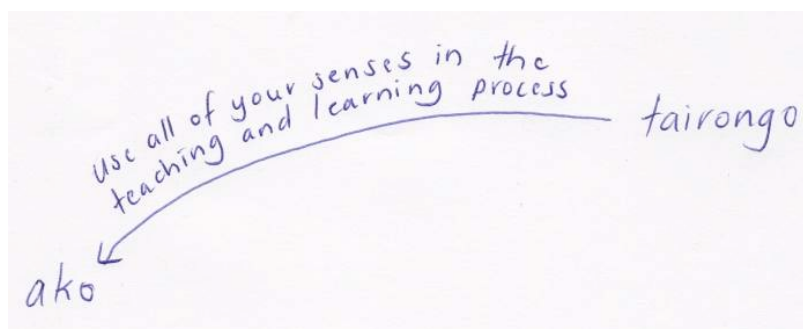 use all of your senses in the
teaching and learning process
tairongo
ako